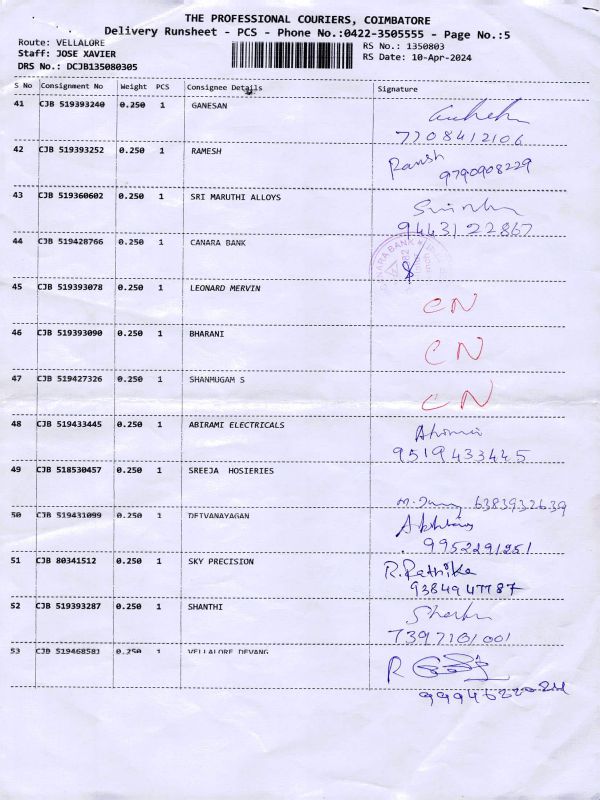 THE PROFESSIONAL COURIERS, COIMBATORE
Delivery Runsheet - PCS - Phone No.:0422-3505555 - Page No.:5
Route: VELLALORE
Staff: JOSE XAVIER
DRS No.: DCJB135080305
RS No.: 1350803
RS Date: 10-Apr-2024
S No Consignment No Weight PCS Consignee Details Signature
41 CJB 519393240 0.250 1 GANESAN
7708412106
42 CJB 519393252 0.250 1 RAMESH Ramsh
9790908229
43 CJB 519360602 0.250 1 SRI MARUTHI ALLOYS
9443122867
44 CJB 519428766 0.250 1 CANARA BANK
45 CJB 519393078 0.250 1 LEONARD MERVIN CN
46 CJB 519393090 0.250 1 BHARANI CN
47 CJB 519427326 0.250 1 SHANMUGAM S CN
48 CJB 519433445 0.250 1 ABIRAMI ELECTRICALS
9519433445
49 CJB 518530457 0.250 1 SREEJA HOSIERIES
6383932639
50 CJB 519431099 0.250 1 DEIVANAYAGAN
9952291251
51 CJB 80341512 0.250 1 SKY PRECISION R.Rathika
9384947787
52 CJB 519393287 0.250 1 SHANTHI
7397101001
53 CJB 519468581 0.250 1 VELLALORE DEVANG